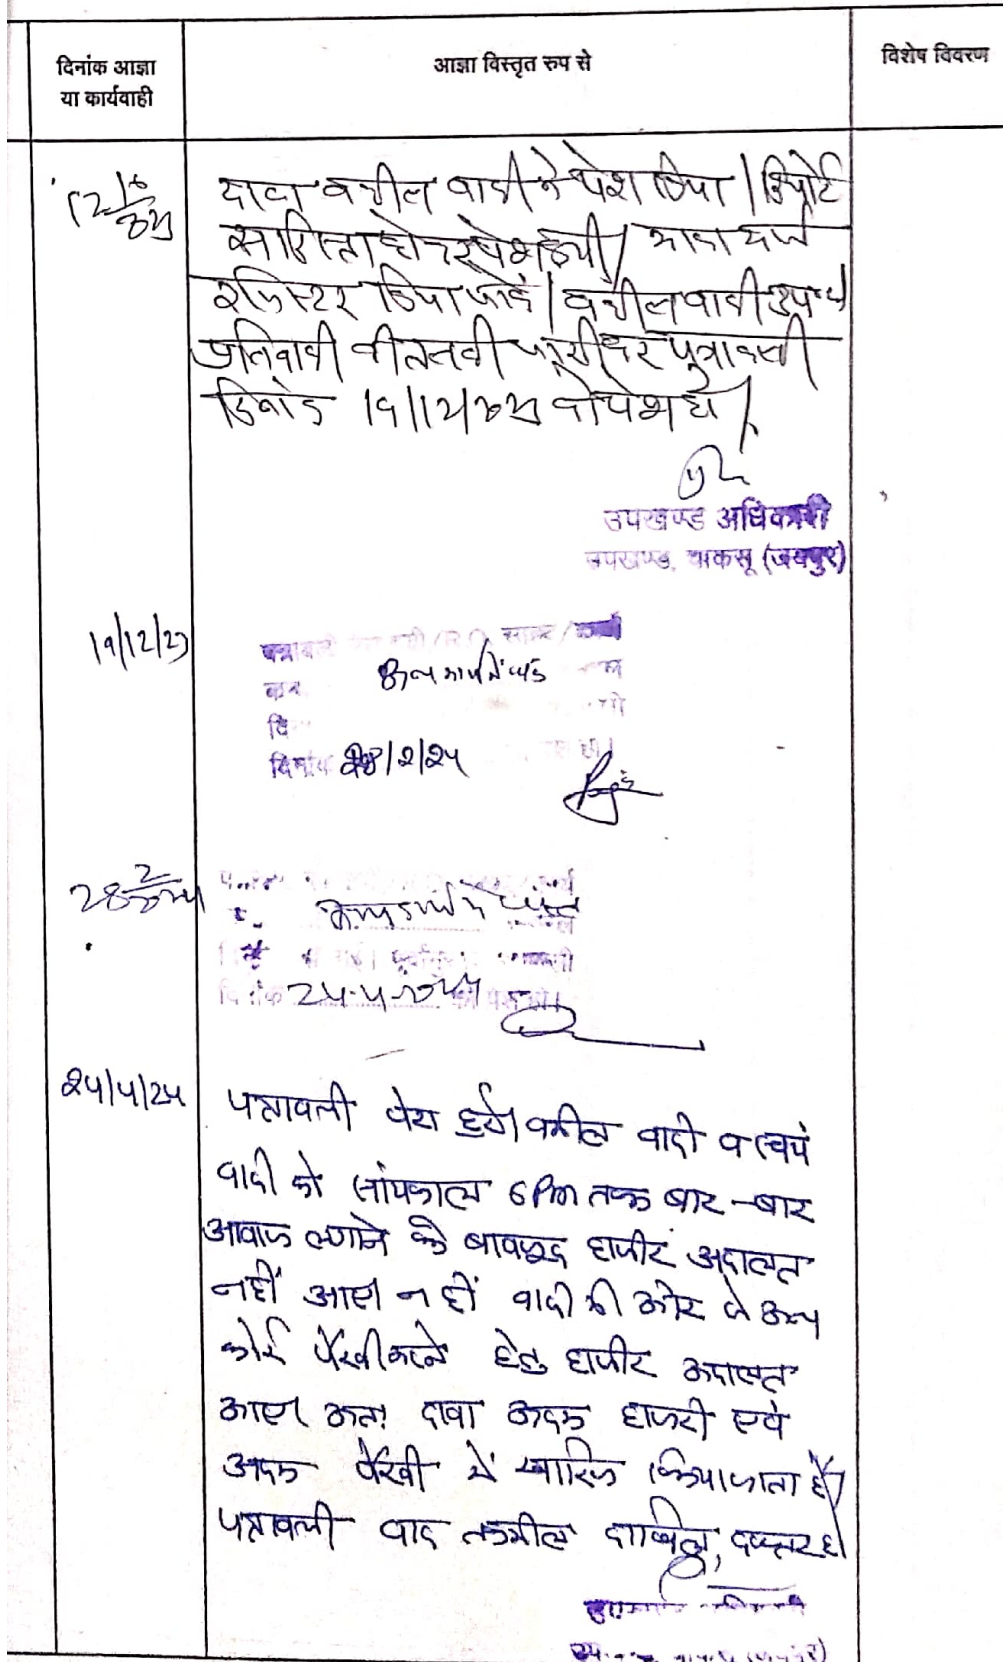 दिनांक आज्ञा
या कार्यवाही
आज्ञा विस्तृत रुप से
विशेष विवरण
दावा वकील वादी ने पेश किया। रिपोर्ट
रजिस्टर किया जावे। वकील वादी उप०
प्रतिवादी की तलबी जारी हो पत्रावली
दिनांक 19/12/ को पेश हो।
उपखण्ड अधिकारी
उपखण्ड, चाकसू (जयपुर)
19/12/23
अन्य कार्य में व्यस्त
दिनांक 28/2/24
28
अन्य कार्य में व्यस्त
24/4/24
पत्रावली पेश हुयी। वकील वादी व स्वयं
वादी को सांयकाल 6 PM तक बार-बार
आवाज लगाने के बावजूद हाजीर अदालत
नहीं आए न हीं वादी की ओर से अन्य
कोई पैरवी करने हेतु हाजीर अदालत
आए। अतः दावा अदम हाजरी एवं
अदम पैरवी में खारिज किया जाता है।
पत्रावली बाद तकमील दाखिल दफ्तर हो